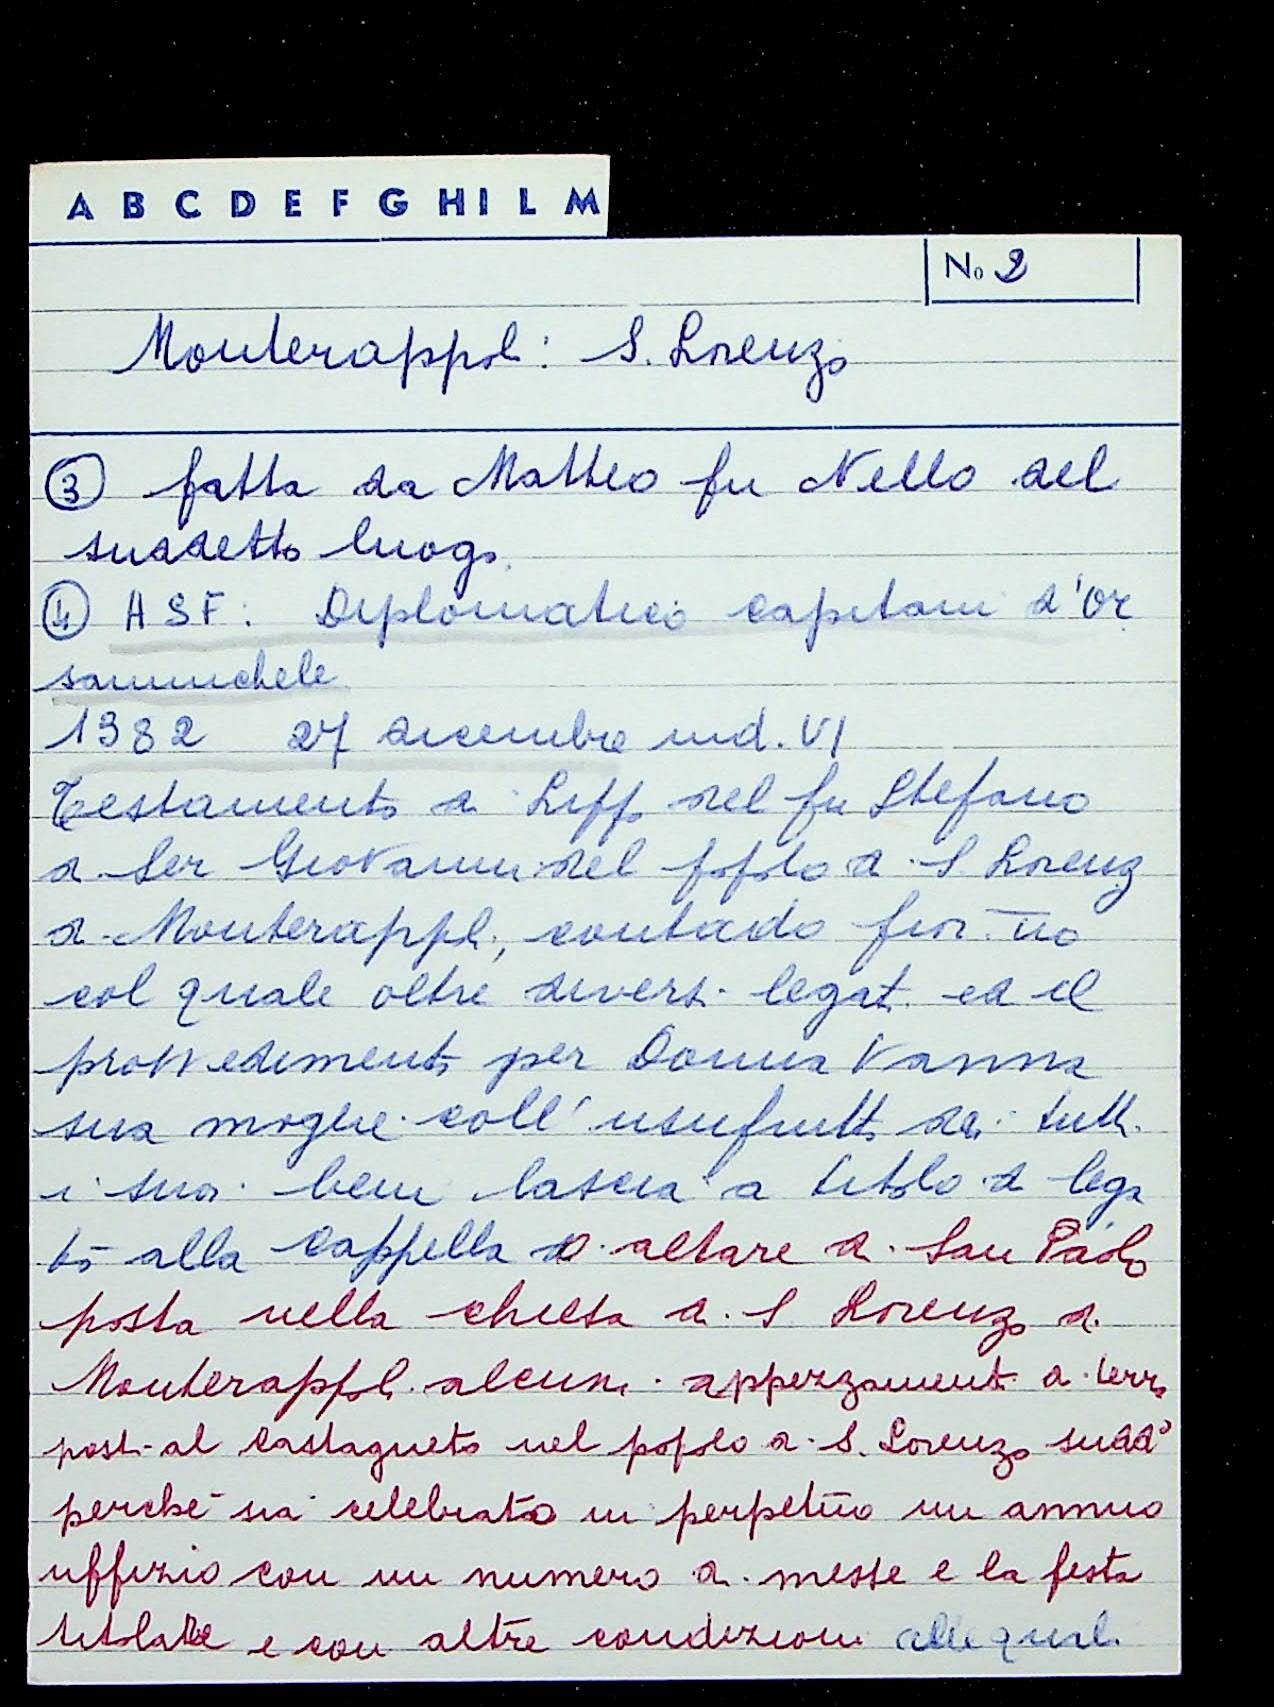 A B C D E F G H I L M
No 2
Monterappoli: S. Lorenzo
③ fatta da Matteo fu Nello del
suddetto luogo.
④ ASF: Diplomatico capitani d'Or
sammichele
1382 27 dicembre ind. VI
Testamento di Lippo del fu Stefano
di Ser Giovanni del popolo di S. Lorenzo
di Monterappoli, contado fior.no
col quale oltre diversi legati ed il
provvedimento per Donna Vanna
sua moglie coll' usufrutto di tutti
i suoi beni lascia a titolo di lega
to alla Cappella o altare di San Paolo
posta nella chiesa di S. Lorenzo di
Monterappoli alcuni appezzamenti di terra
posti al Castagneto nel popolo di S. Lorenzo sudd°
perché sia celebrato in perpetuo un annuo
uffizio con un numero di messe e la festa
titolare e con altre condizioni alle quali